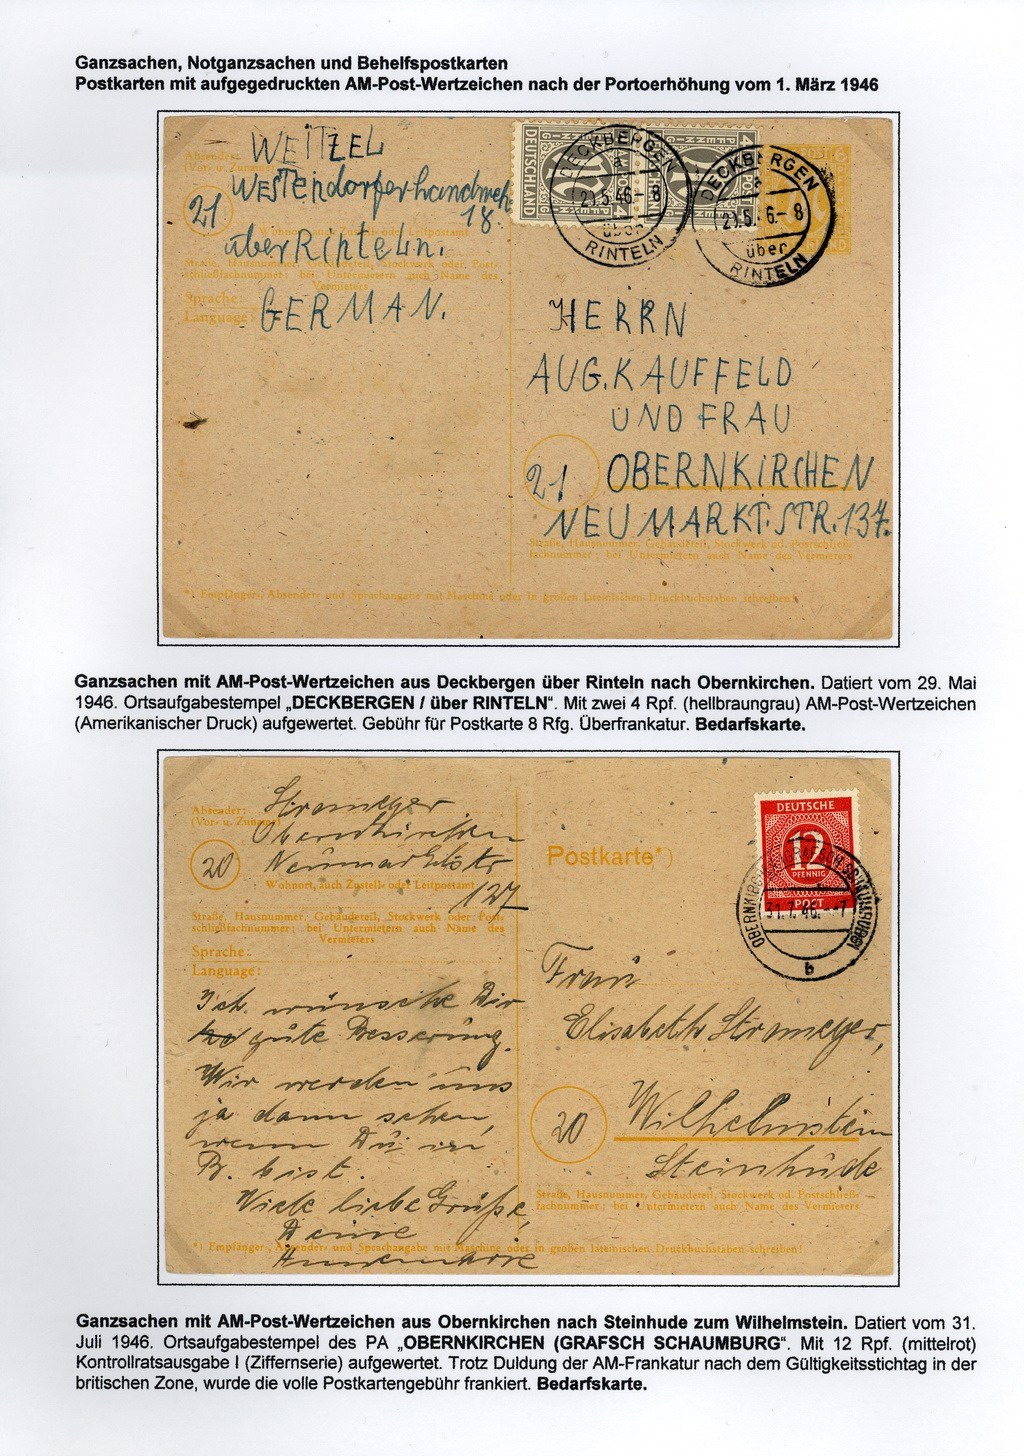 Ganzsachen, Notganzsachen und Behelfspostkarten
Postkarten mit aufgegedruckten AM-Post-Wertzeichen nach der Portoerhöhung vom 1. März 1946
WEITZEL
WESTENdorferLandweh
18.
21
überRinteLn.
GERMAN.
Absender:
(Vor- u. Zuname)
Wohnort, auch Zustell- oder Leitpostamt
Straße, Hausnummer, Gebäudeteil, Stockwerk oder Post-
schließfachnummer; bei Untermietern auch Name des
Vermieters
Sprache:
Language:
DEUTSCHLAND
PFENNIG
4
DECKBERGEN
a
29.5.46.-8
über
RINTELN
DECKBERGEN
a
29.5. 6.-8
über
RINTELN
HERRN
AUG. KAUFFELD
UND FRAU
21 OBERNKIRCHEN
NEUMARKT.STR.137.
Straße, Hausnummer, Gebäudeteil, Stockwerk od. Postschließ-
fachnummer; bei Untermietern auch Name des Vermieters
*) Empfänger-, Absender- und Sprachangabe mit Maschine oder in großen lateinischen Druckbuchstaben schreiben!
Ganzsachen mit AM-Post-Wertzeichen aus Deckbergen über Rinteln nach Obernkirchen. Datiert vom 29. Mai
1946. Ortsaufgabestempel „DECKBERGEN / über RINTELN“. Mit zwei 4 Rpf. (hellbraungrau) AM-Post-Wertzeichen
(Amerikanischer Druck) aufgewertet. Gebühr für Postkarte 8 Rfg. Überfrankatur. Bedarfskarte.
Absender:
(Vor- u. Zuname)
Stromeyer
Obernkirchen
20
Neumarktstr
127
Wohnort, auch Zustell- oder Leitpostamt
Straße, Hausnummer, Gebäudeteil, Stockwerk oder Post-
schließfachnummer; bei Untermietern auch Name des
Vermieters
Sprache:
Language:
Ich wünsche Dir
gute Besserung.
Wir werden uns
ja dann sehen,
wenn Du in
B. bist.
Viele liebe Grüße,
Deine
Annemarie
Postkarte*)
DEUTSCHE
12
PFENNIG
POST
OBERNKIRCHEN (GRAFSCH SCHAUMBURG)
31.7.46.--7
b
Frau
Elisabeth Stromeyer,
20
Wilhelmstein
Steinhude
Straße, Hausnummer, Gebäudeteil, Stockwerk od. Postschließ-
fachnummer; bei Untermietern auch Name des Vermieters
*) Empfänger-, Absender- und Sprachangabe mit Maschine oder in großen lateinischen Druckbuchstaben schreiben!
Ganzsachen mit AM-Post-Wertzeichen aus Obernkirchen nach Steinhude zum Wilhelmstein. Datiert vom 31.
Juli 1946. Ortsaufgabestempel des PA „OBERNKIRCHEN (GRAFSCH SCHAUMBURG“. Mit 12 Rpf. (mittelrot)
Kontrollratsausgabe I (Ziffernserie) aufgewertet. Trotz Duldung der AM-Frankatur nach dem Gültigkeitsstichtag in der
britischen Zone, wurde die volle Postkartengebühr frankiert. Bedarfskarte.